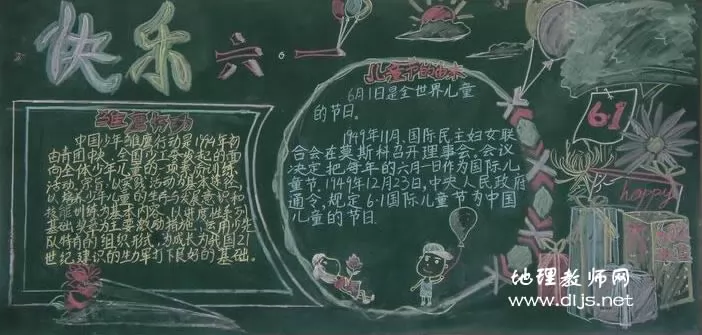 快乐六·一
雏鹰行动
中国少年雏鹰行动是1994年初
由青团中央、全国少工委发起的面
向全体少年儿童的一项素质训练
活动,宗旨:以实践活动为基本途径,
以培养少年儿童的生存与发展意识和
技能训练为基本内容,以进度性系列
基础奖章为主要激励措施,运用少先
队特有的组织形式,为成长为我国21
世纪建识的生力军打下良好的基础。
儿童节的由来
6月1日是全世界儿童
的节日。
1949年11月,国际民主妇女联
合会在莫斯科召开理事会、会议
决定把每年的六月一日作为国际儿
童节.1949年12月23日,中央人民政府
通令,规定6·1国际儿童节为中国
儿童的节日.
6·1
happy
地理教师网
www.dljs.net